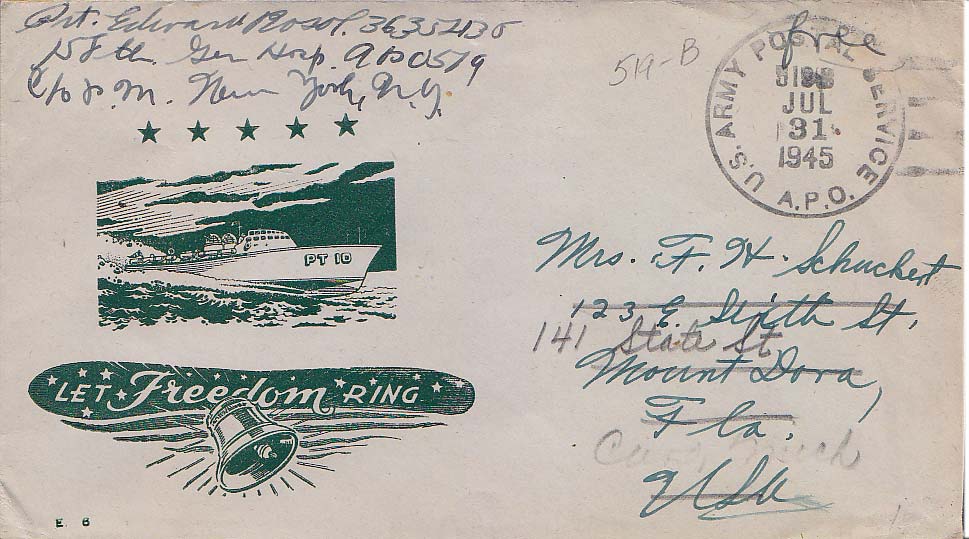 Pvt. Edward Rosol. 36354130
158th. Gen Hosp. APO 519
C/o P.M. New York, N.Y.
519-B
free
U.S. ARMY POSTAL SERVICE
A.P.O.
JUL
31
1945
PT 10
LET Freedom RING
E. 6
Mrs. F. H. Schuckert
123 E. Sixth St,
141 State St
Mount Dora,
Fla.
Mich
USA